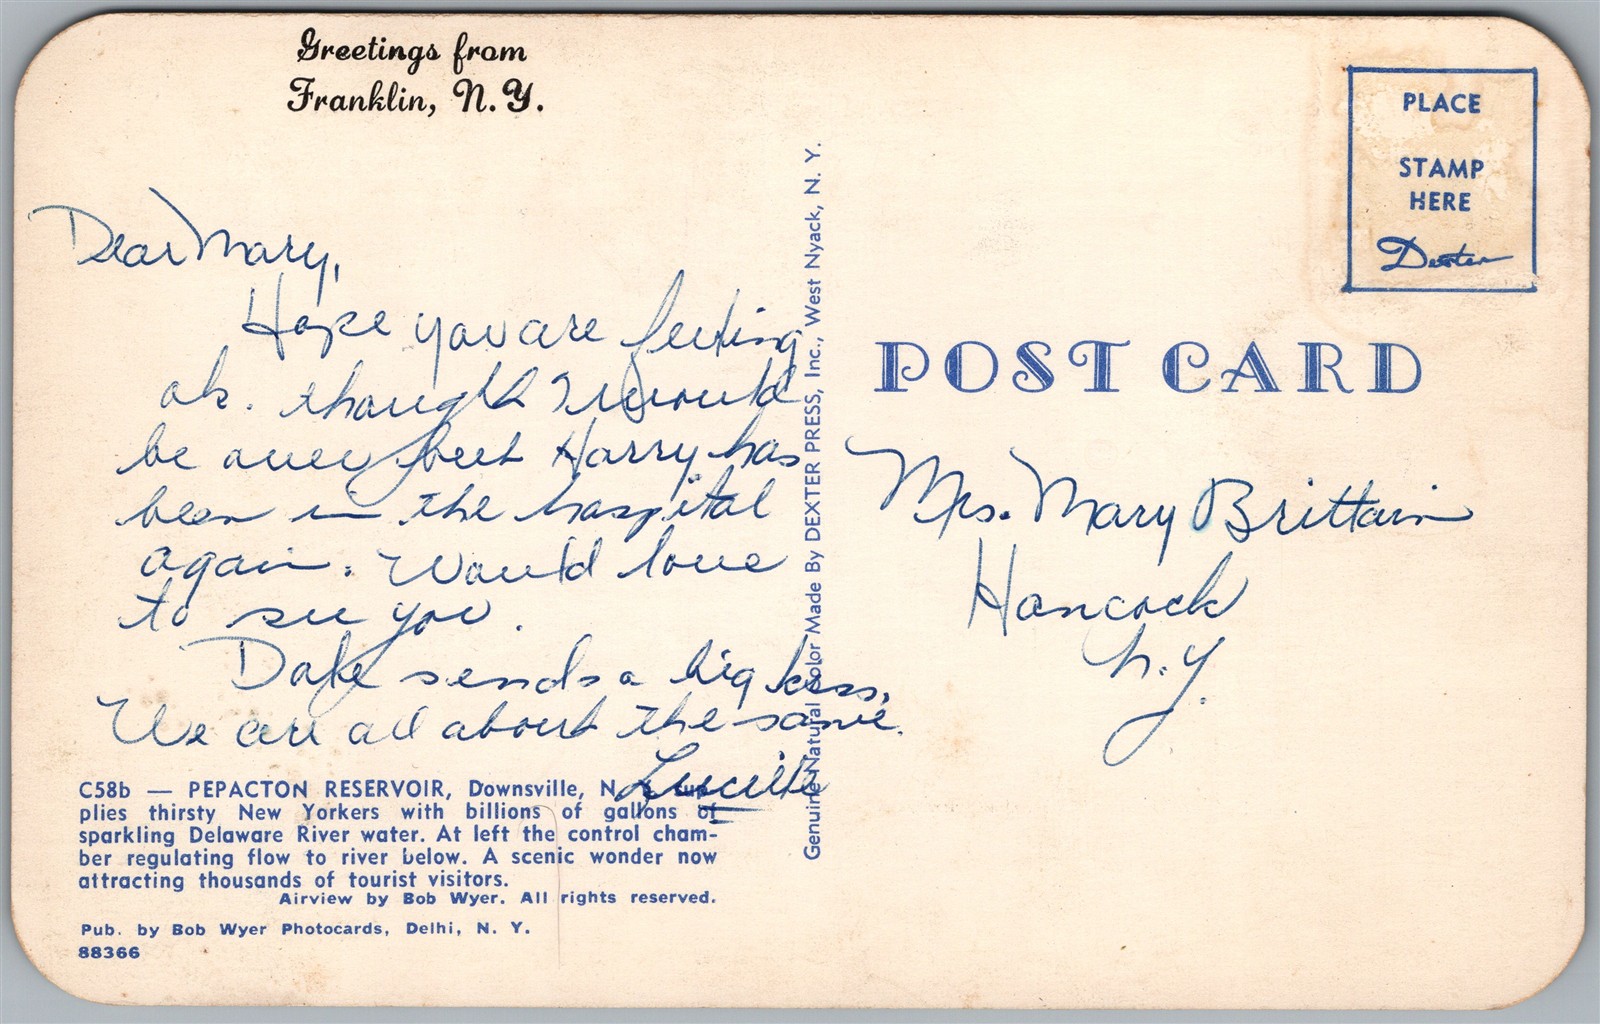 Greetings from
Franklin, N.Y.
Dear Mary,
Hope you are feeling
ok. thought I would
be over but Harry has
been in the hospital
again. Would love
to see you.
Dale sends a big kiss.
We are all about the same.
Lucille
C58b — PEPACTON RESERVOIR, Downsville, N.
plies thirsty New Yorkers with billions of gallons of
sparkling Delaware River water. At left the control cham-
ber regulating flow to river below. A scenic wonder now
attracting thousands of tourist visitors.
Airview by Bob Wyer. All rights reserved.
Pub. by Bob Wyer Photocards, Delhi, N. Y.
88366
Genuine Natural Color Made By DEXTER PRESS, Inc., West Nyack, N. Y.
PLACE
STAMP
HERE
Dexter
POST CARD
Mrs. Mary Brittain
Hancock
N.Y.